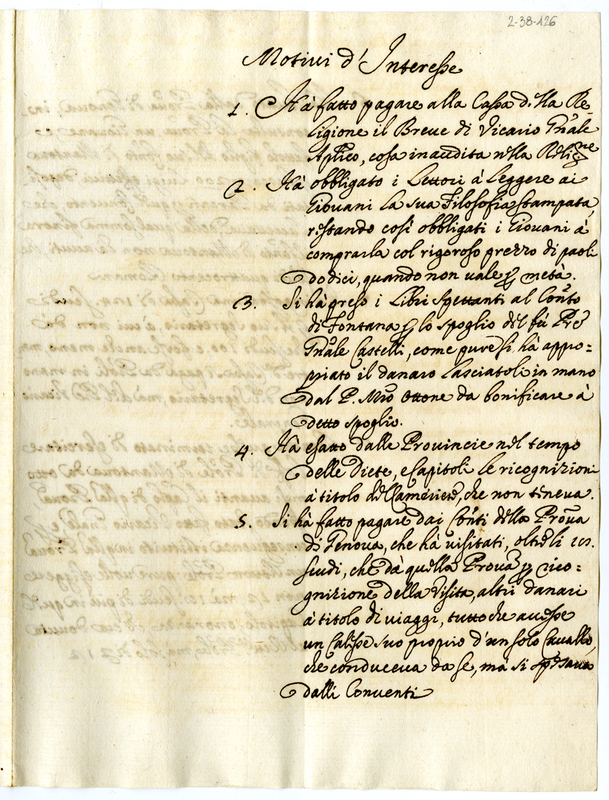 2-38-126
Motivi d'Interesse
1. Hà fatto pagare alla Cassa della Re
ligione il Breve di Vicario Gñale
Aplico, cosa inaudita nella Relig.ne
2. Hà obbligato i Lettori à leggere ai
Giovani la sua Filosofia stampata,
restando così obbligati i Giovani à
comprarla col rigoroso prezzo di paoli
dodici, quando non vale p metà.
3. Si hà preso i Libri spettanti al Conto
di Fontana p lo spoglio del fù Pre
Gñale Castelli, come pure si hà appro=
piato il danaro lasciatoli in mano
dal P. Mro Ottone da bonificare à
detto spoglio.
4. Hà esatto dalle Provincie nel tempo
delle Diete, e Capitoli le ricognizioni
à titolo del, che non teneva.
5. Si hà fatto pagare dai Conti della Prova
di Genova, che hà visitati, oltre li
scudi, che dà quella Prova p rico=
gnizione della Visita, altri danari
à titolo di viaggi, tutto che avesse
un Calesse suo proprio d'un solo Cavallo,
che conduceva da se, mà si
dalli Conventi